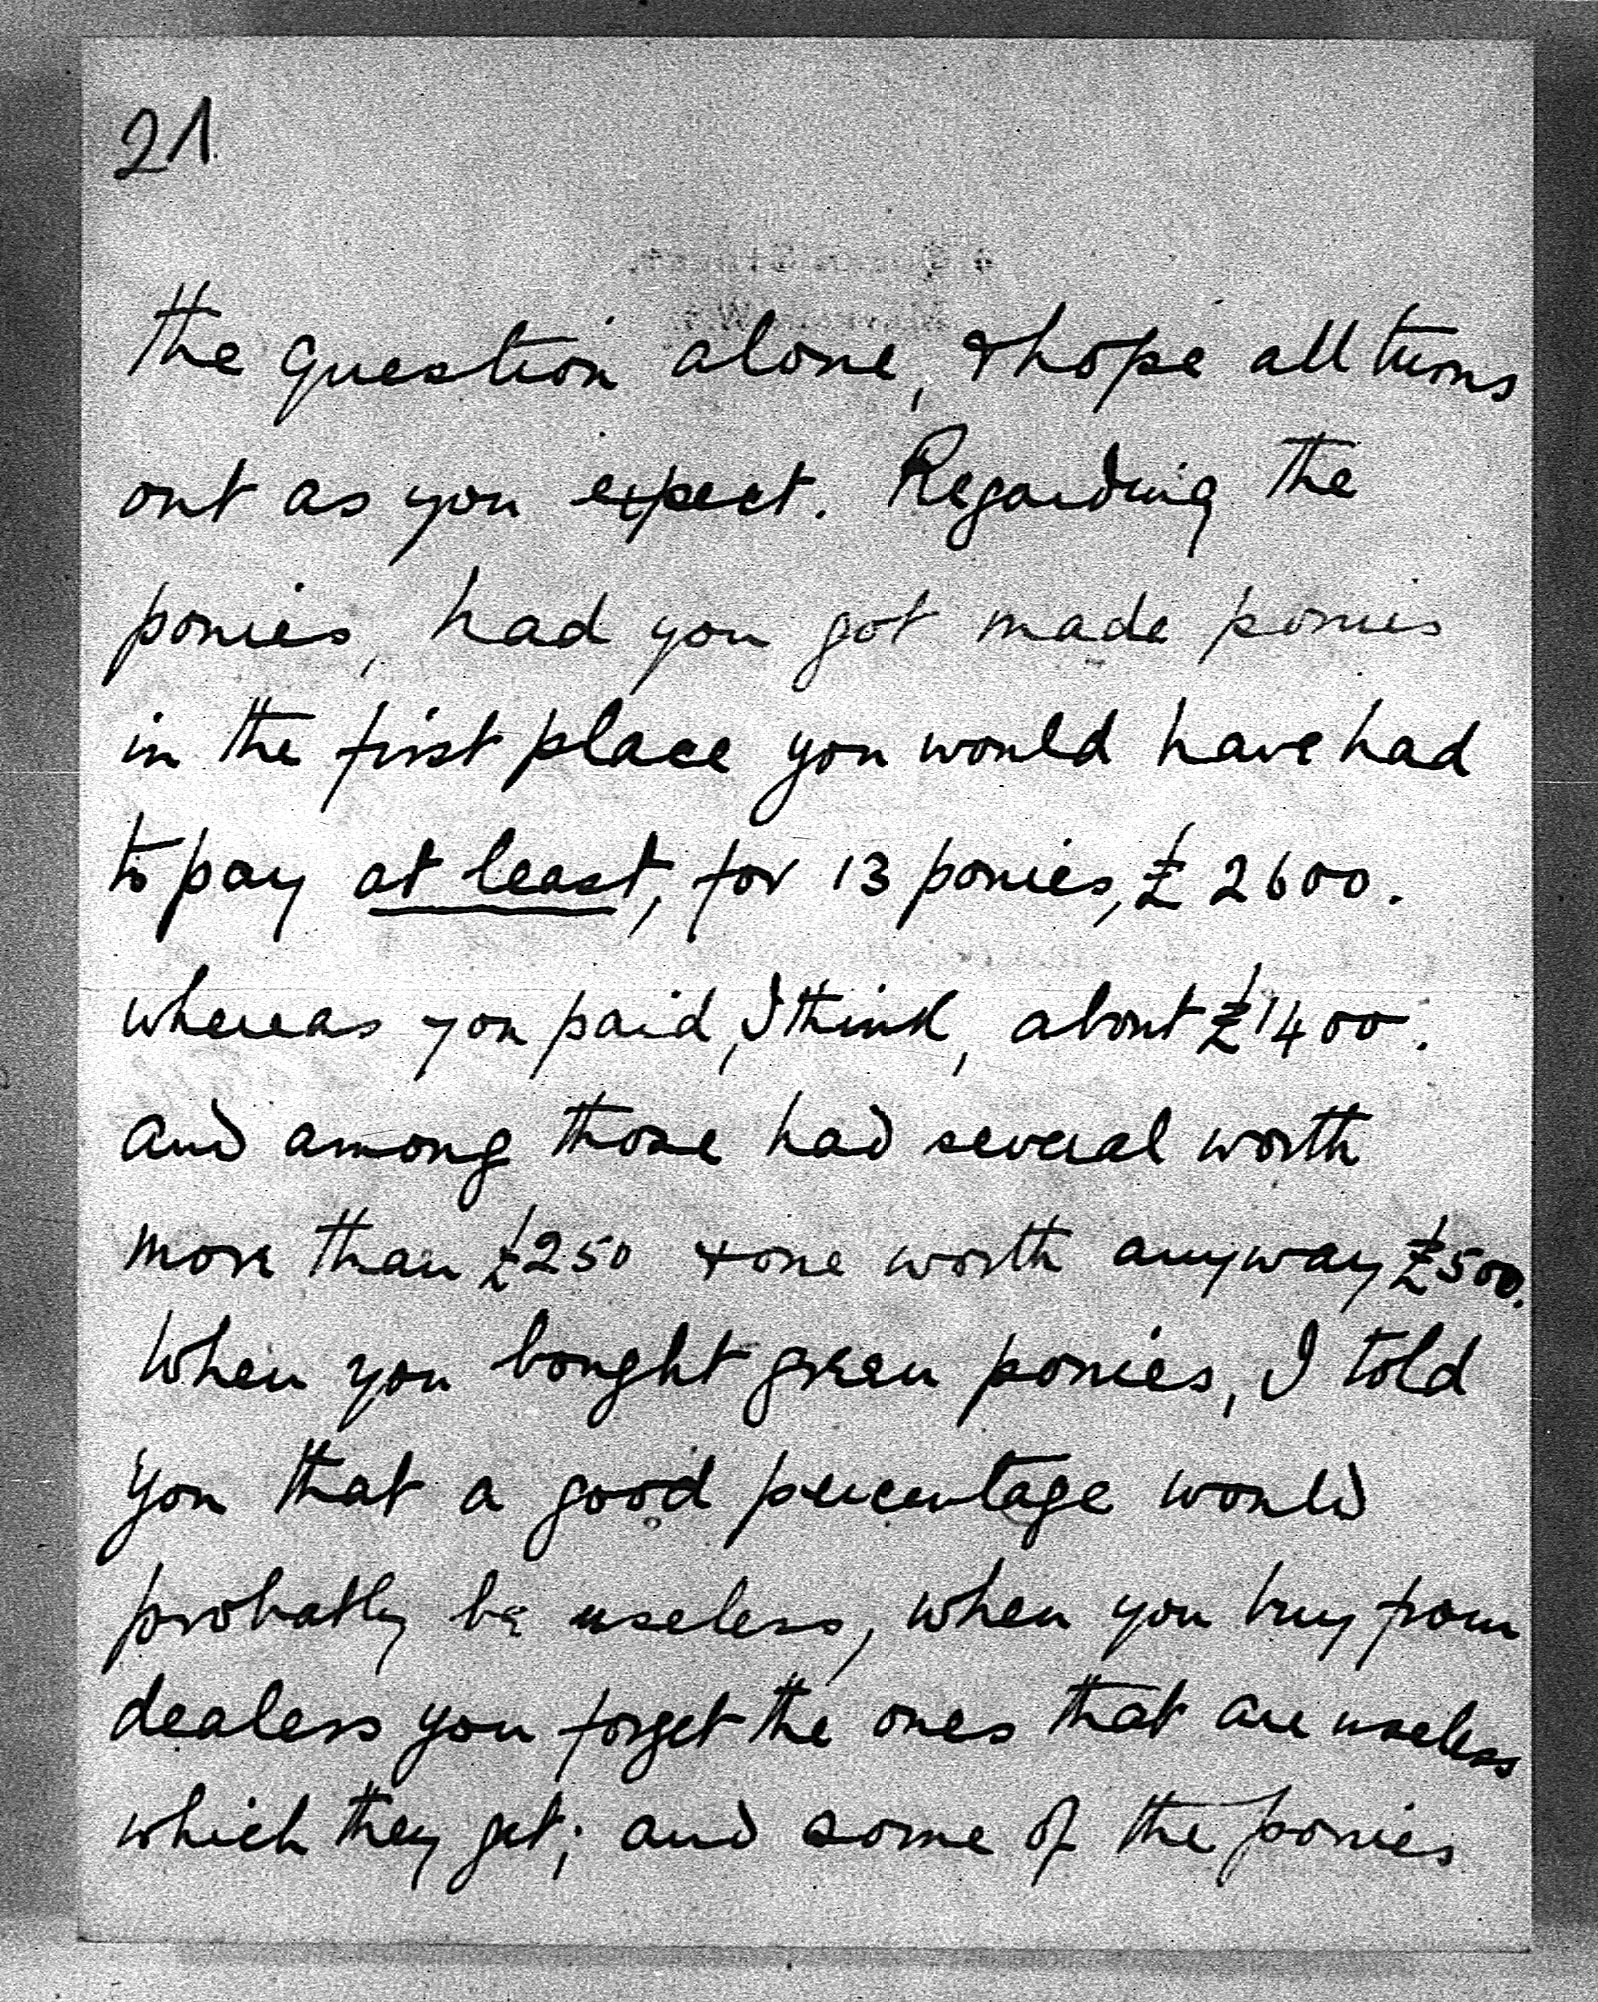 21
the question alone, & hope all turns
out as you expect. Regarding the
ponies, had you got made ponies
in the first place you would have had
to pay at least, for 13 ponies, £2600.
whereas you paid, I think, about £1400.
and among those had several worth
more than £250 & one worth anyway £500.
When you bought green ponies, I told
you that a good percentage would
probably be useless, when you buy from
dealers you forget the ones that are useless
which they get; and some of the ponies